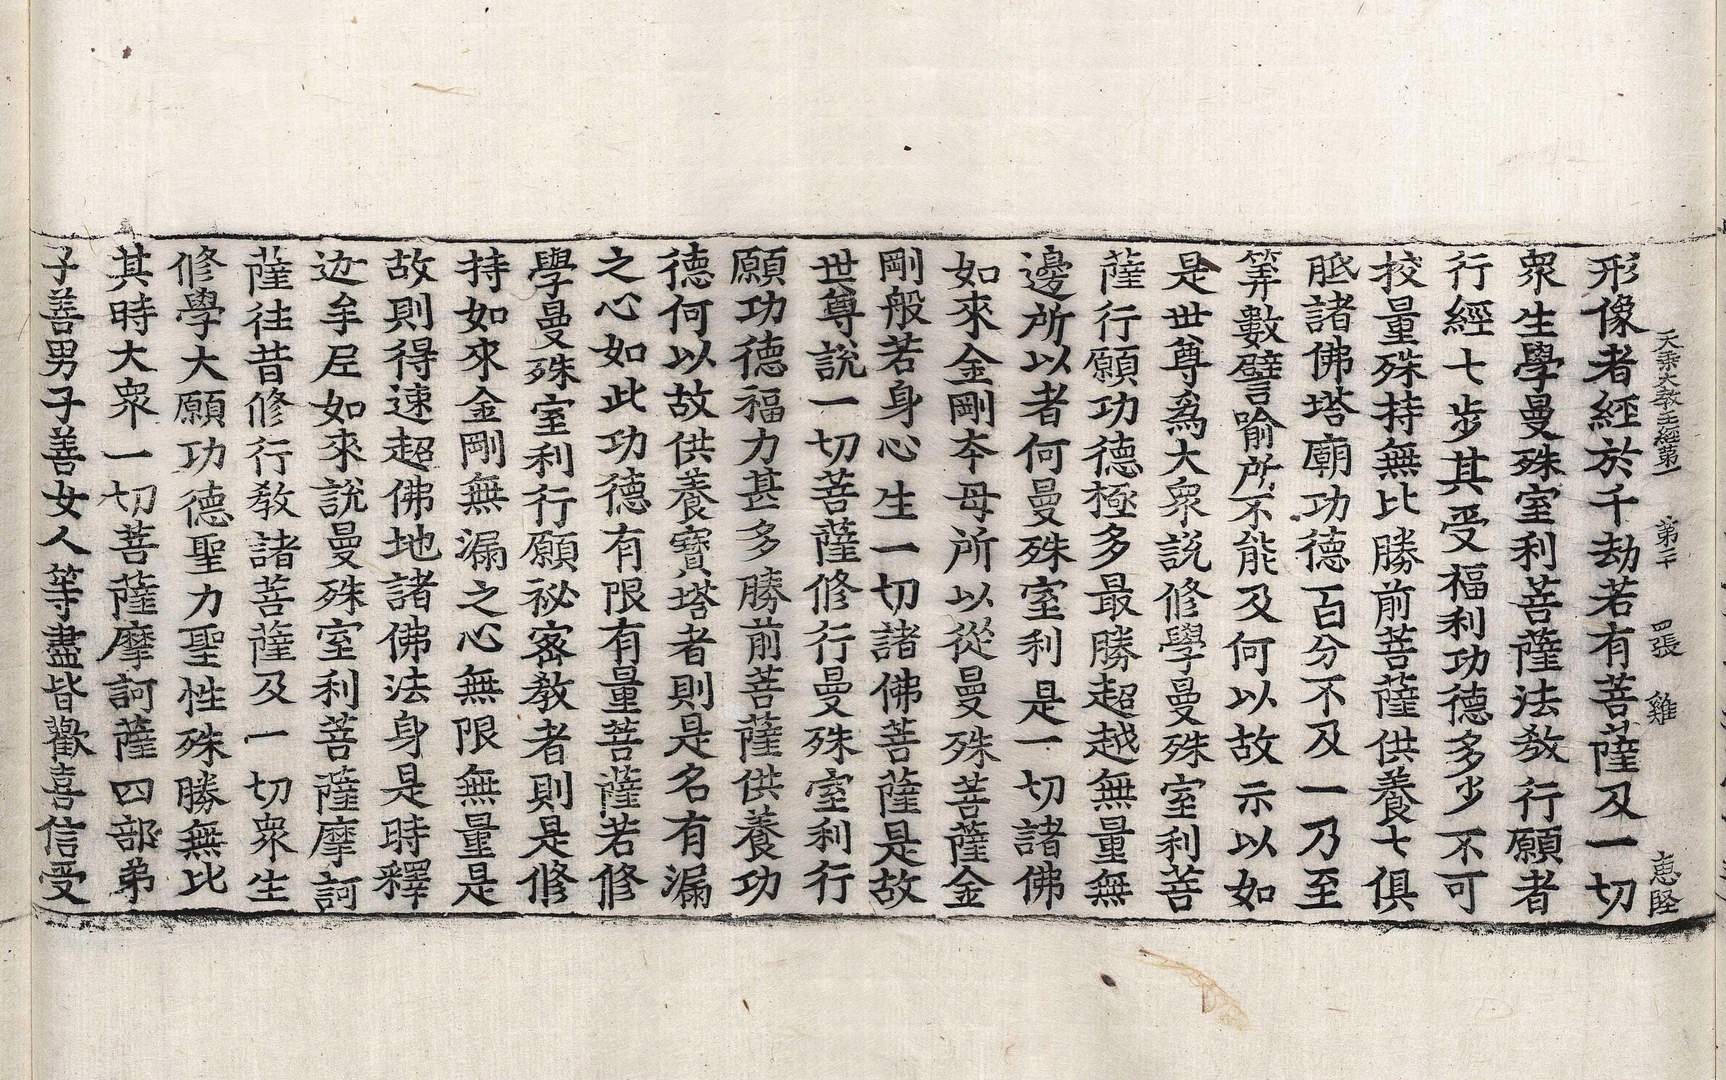 大乘大教王經第一　第二　四張　雞　惠堅
形像者經於千劫若有菩薩及一切
衆生學曼殊室利菩薩法敎行願者
行經七步其受福利功德多少不可
挍量殊持無比勝前菩薩供養七俱
胝諸佛塔廟功德百分不及一乃至
筭數譬喻所不能及何以故示以如
是世尊爲大衆說修學曼殊室利菩
薩行願功德極多最勝超越無量無
邊所以者何曼殊室利是一切諸佛
如來金剛夲母所以從曼殊菩薩金
剛般若身心生一切諸佛菩薩是故
世尊說一切菩薩修行曼殊室利行
願功德福力甚多勝前菩薩供養功
德何以故供養寶塔者則是名有漏
之心如此功德有限有量菩薩若修
學曼殊室利行願祕密敎者則是修
持如來金剛無漏之心無限無量是
故則得速超佛地諸佛法身是時釋
迦牟尼如來說曼殊室利菩薩摩訶
薩往昔修行敎諸菩薩及一切衆生
修學大願功德聖力聖性殊勝無比
其時大衆一切菩薩摩訶薩四部弟
子善男子善女人等盡皆歡喜信受